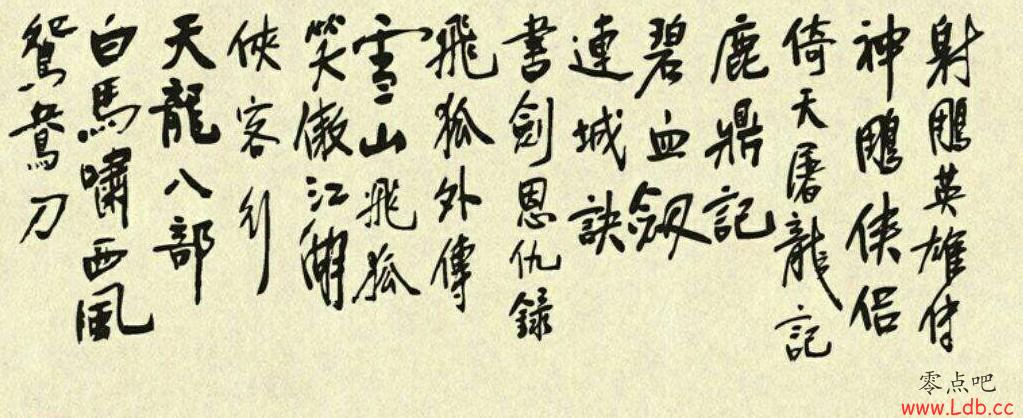 射鵰英雄传
神鵰侠侣
倚天屠龍記
鹿鼎記
碧血劔
連城訣
書劍恩仇錄
飛狐外傳
雪山飛狐
笑傲江湖
俠客行
天龍八部
白馬嘯西風
鴛鴦刀
零点吧
www.Ldb.cc